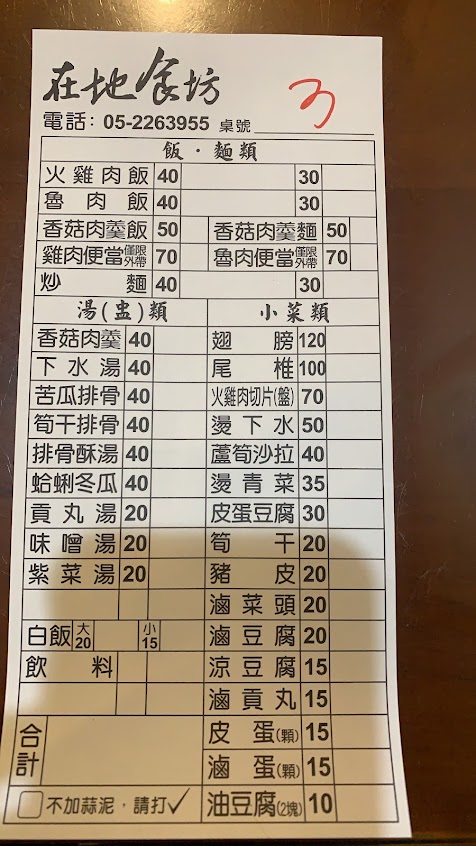 在地食坊
3
電話：05-2263955 桌號
飯．麵類
火雞肉飯 40 30
魯肉飯 40 30
香菇肉羹飯 50 香菇肉羹麵 50
雞肉便當僅限外帶 70 魯肉便當僅限外帶 70
炒麵 40 30
湯(盅)類 小菜類
香菇肉羹 40 翅膀 120
下水湯 40 尾椎 100
苦瓜排骨 40 火雞肉切片(盤) 70
筍干排骨 40 燙下水 50
排骨酥湯 40 蘆筍沙拉 40
蛤蜊冬瓜 40 燙青菜 35
貢丸湯 20 皮蛋豆腐 30
味噌湯 20 筍干 20
紫菜湯 20 豬皮 20
滷菜頭 20
白飯 大20 小15 滷豆腐 20
飲料 涼豆腐 15
滷貢丸 15
合計 皮蛋(顆) 15
滷蛋(顆) 15
不加蒜泥，請打✓ 油豆腐(2塊) 10